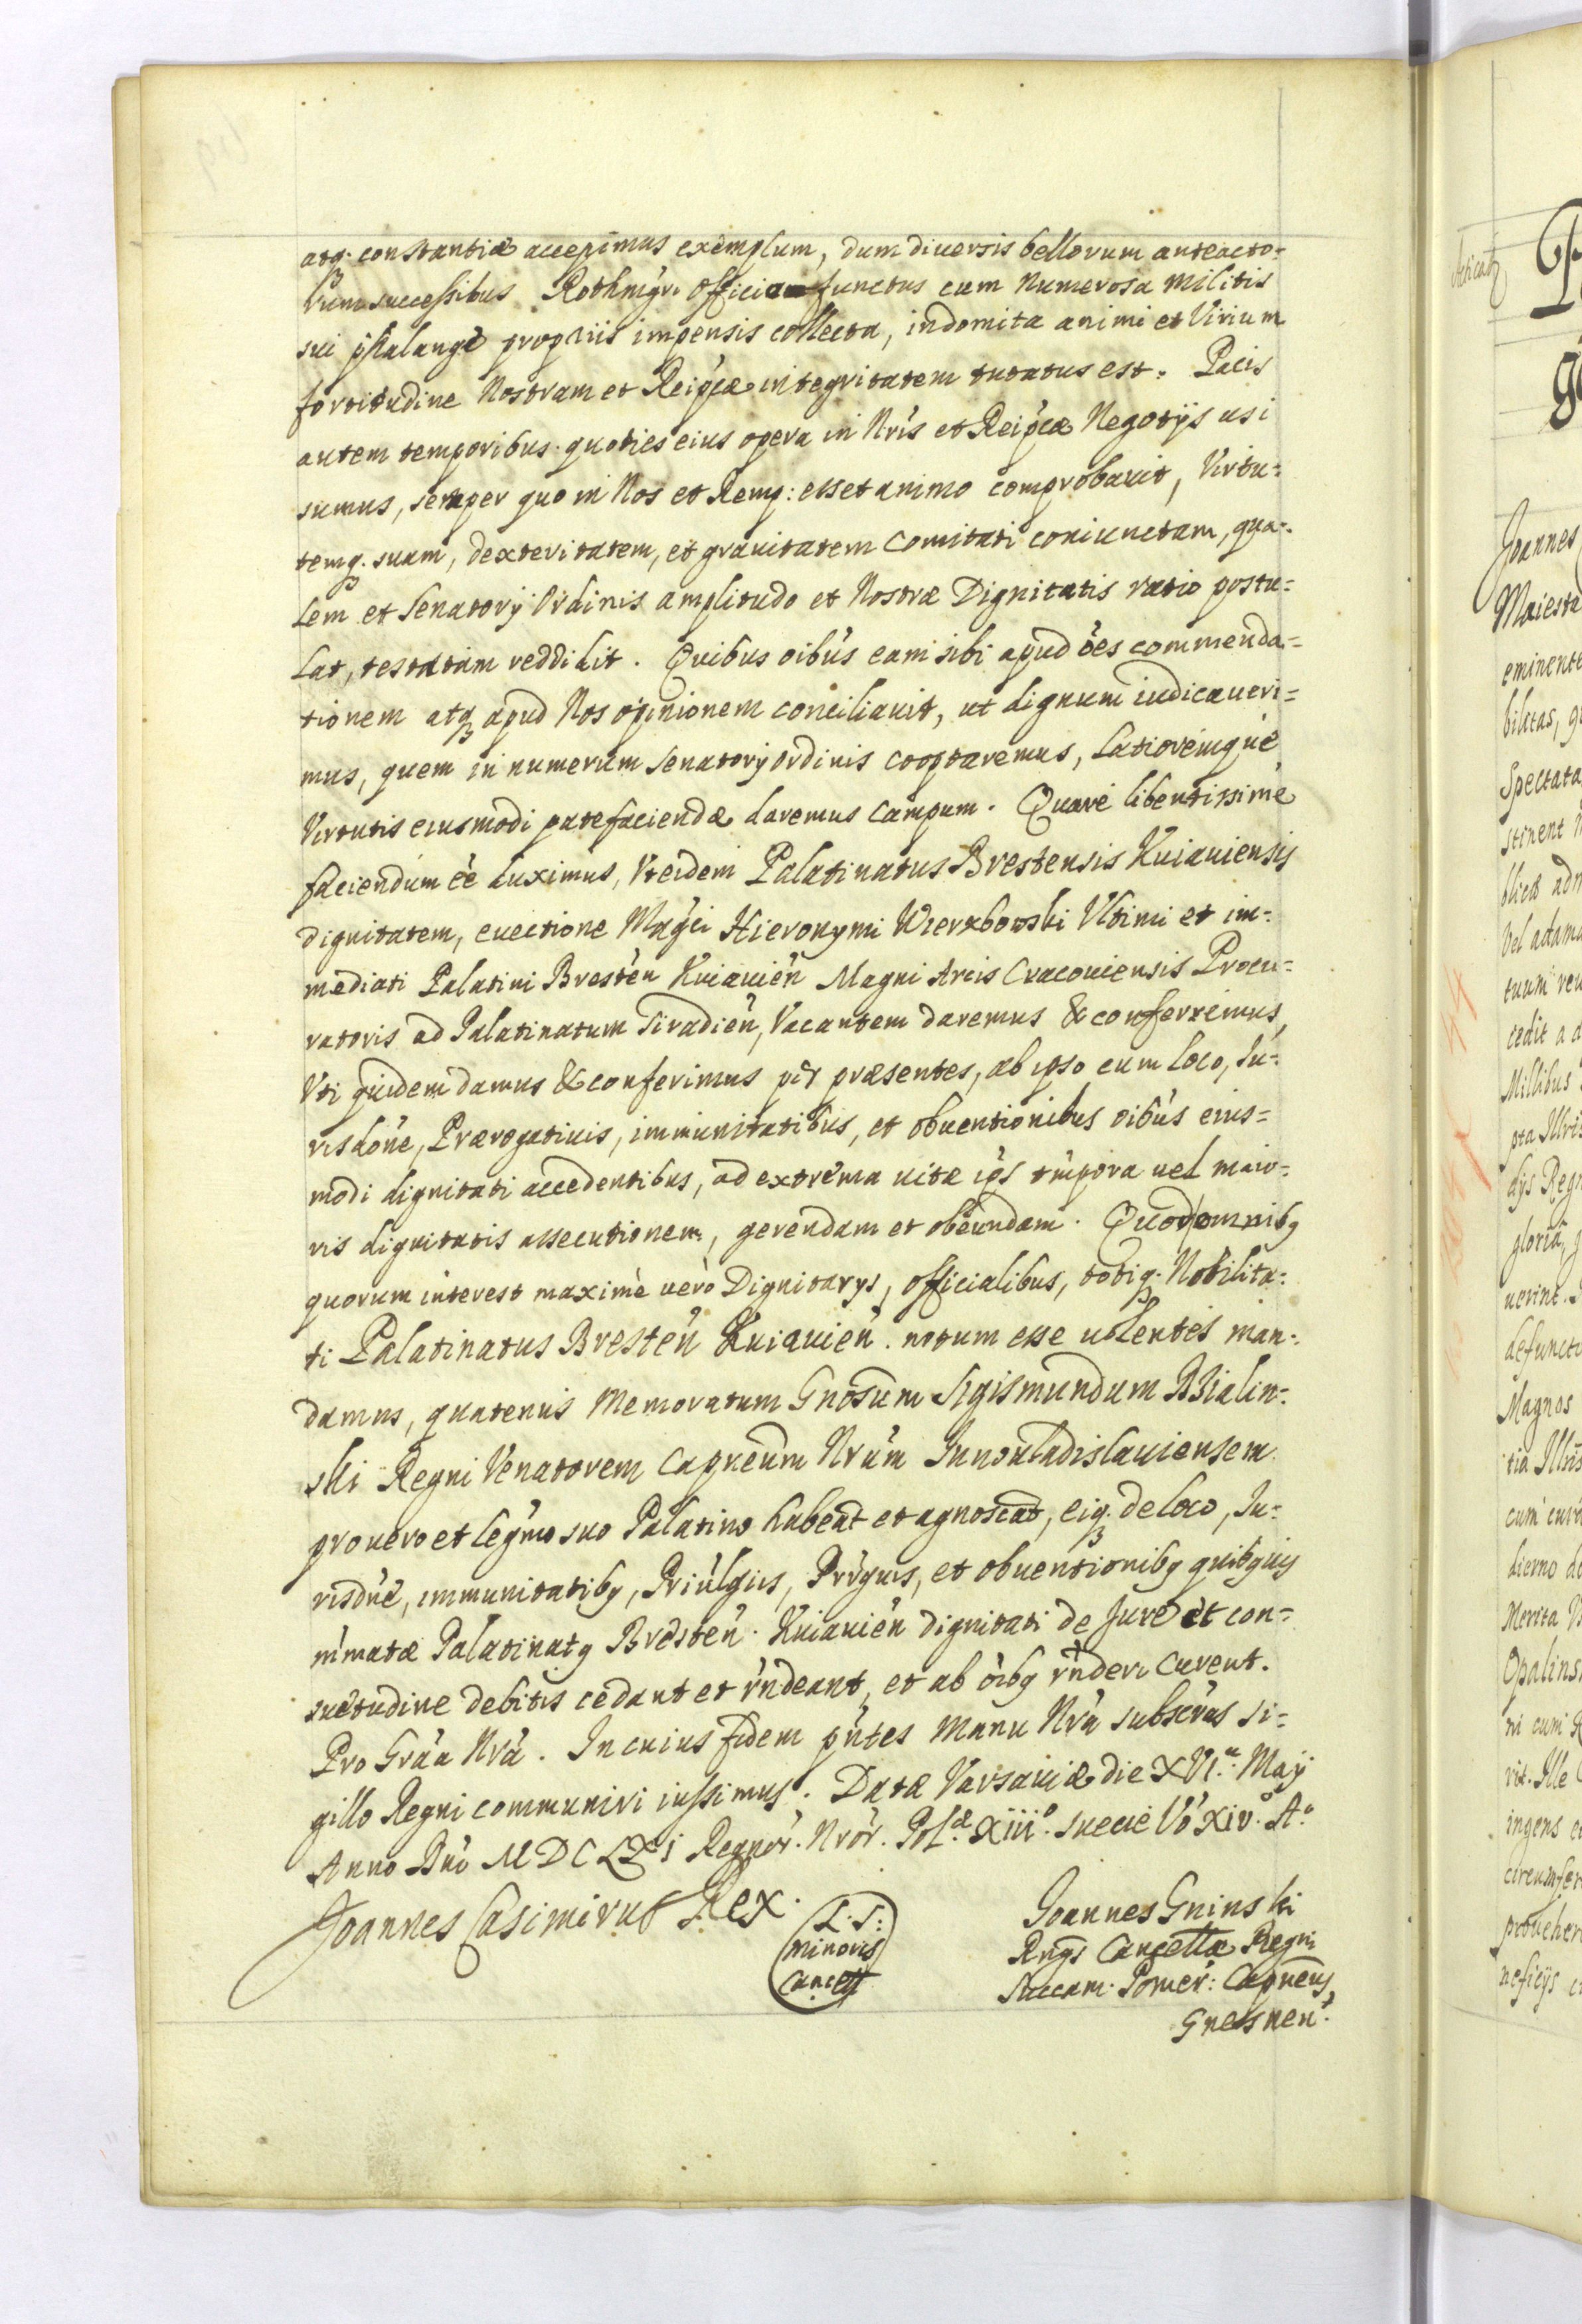 atq; constantiæ accepimus exemplum, dum diuersis bellorum anteacto=
rum successibus Rothmgri officio functus cum numerosa militis
sui phalange propriis impensis collecta, indomita animi et Virium
fortitudine Nostram et Reipcæ integritatem tutatus est. Pacis
autem temporibus quoties eius opera in Nris et Reipcæ Negotijs usi
sumus, semper quo in Nos et Remp: esset animo comprobauit, Virtu=
temq; suam, dexteritatem, et grauitatem comitati coniunctam, qua=
lem et Senatorij Ordinis amplitudo et Nostræ Dignitatis ratio postu=
lat, testatam reddidit. Quibus oibus eam sibi apud oes commenda=
tionem atq; apud Nos opinionem conciliauit, ut dignum iudicaueri=
mus, quem in numerum Senatorij ordinis cooptaremus, Latioremque
Virtutis eiusmodi patefaciendæ daremus campum. Quare libentissime
faciendum ee duximus, Vt eidem Palatinatus Brestensis Kuiauiensis
dignitatem, euectione Magci Hieronymi Wierzbowski Vltimi et im=
mediati Palatini Bresten Kuiauien Magni Arcis Cracouiensis Procu=
ratoris ad Palatinatum Siradien, Vacantem daremus & conferremus,
Vti quidem damus & conferimus per præsentes, ab ipso cum loco, Ju=
risdone, Prærogatiuis, immunitatibus, et obuentionibus oibus eius=
modi dignitati accedentibus, ad extrema uitæ ips tmpora uel maio=
ris dignitatis assecutionem, gerendam et obeundam. Quod omnibq
quorum interest maxime uero Dignitarys, officialibus, totiq; Nobilita=
ti Palatinatus Bresten Kuiauien. notum esse uolentes man=
damus, quatenus Memoratum Gnosum Sigismundum Dzialin=
ski Regni Venatorem Capneum Nrum Innouladislauiensem
pro uero et legmo suo Palatino habeat et agnoscat, eiq; de loco, Ju=
risdne, immunitatibq, Priulgiis, Prrguis, et obuentionibq quibquis
nimatæ Palatinatq Bresten. Kuiauien dignitati de Jure et con=
suetudine debitis cedant et rndeant, et ab oibq rnderi curent.
Pro Graa Nra. In cuius fidem pntes manu Nra subscras si=
gillo Regni communiri iussimus. Datæ Varsauiæ die XVI.a Maij
Anno Dni MDCLXI Regnor. Nror. Pol.æ Xiii.o Sueciæ Vo Xiv.o A.o
Joannes Casimirus Rex.
L: S:
minoris
Cancell
Joannes Gninski
Rngs Cancellæ Regni
Succam. Pomer: Capneus
Gnesnen.